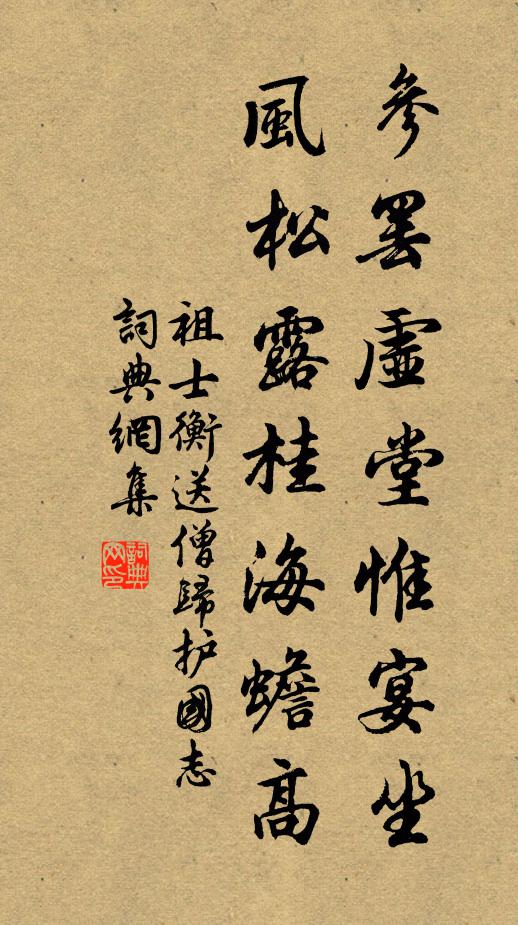 參罷虛堂惟宴坐
風松露桂海蟾高
祖士衡送僧歸护國志
詞典網集
詞典網印